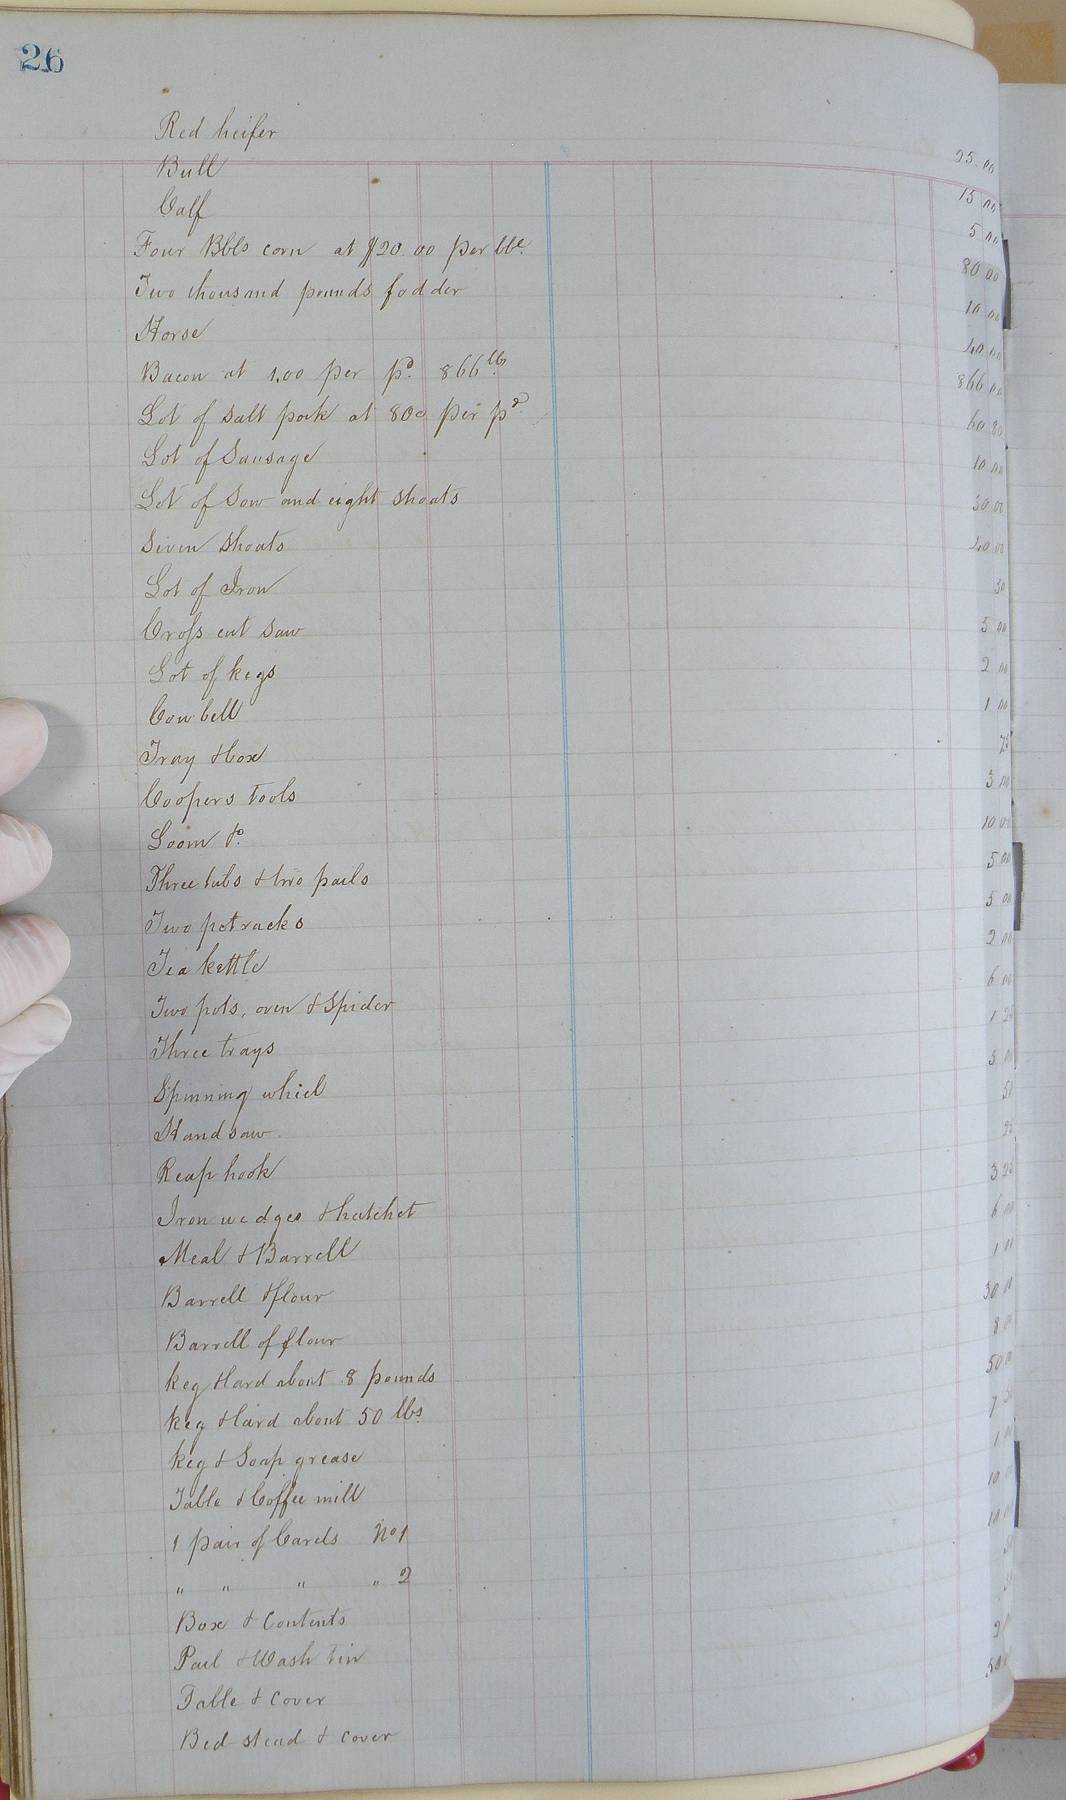 26
Red heifer 25.00
Bull 15 00
Calf 5 00
Four Bbls corn at $20.00 per bbl. 80 00
Two thousand pounds fodder 10 00
Horse 40 00
Bacon at 1.00 per pd. 866 lbs. 866 00
Lot of Salt pork at 80c per pd. 60 80
Lot of Sausage 10 00
Lot of Sow and eight shoats 30 00
Seven Shoats 40 00
Lot of Iron 30
Cross cut Saw 5 00
Lot of kegs 2 00
Cow bell 1 00
Tray & box 75
Coopers Tools 3 00
Loom &c. 10 00
Three tubs & two pails 5 00
Two potracks 5 00
Tea kettle 2 00
Two pots, oven & Spider 6 00
Three trays 1 25
Spinning whiel 5 00
Hand saw 50
Reap hook 25
Iron wedges & hatchet 3 25
Meal & Barrell 6 00
Barrell & flour 1 00
Barrell of flour 30 00
keg & lard about 8 pounds 8 00
keg & lard about 50 lbs. 50 00
keg & Soap grease 7
Table & Coffee mill 1
1 pair of Cards No 1 10
" " " " 2 10
Box & Contents
Pail & Wash tin
Table & cover 2
Bed stead & cover 50